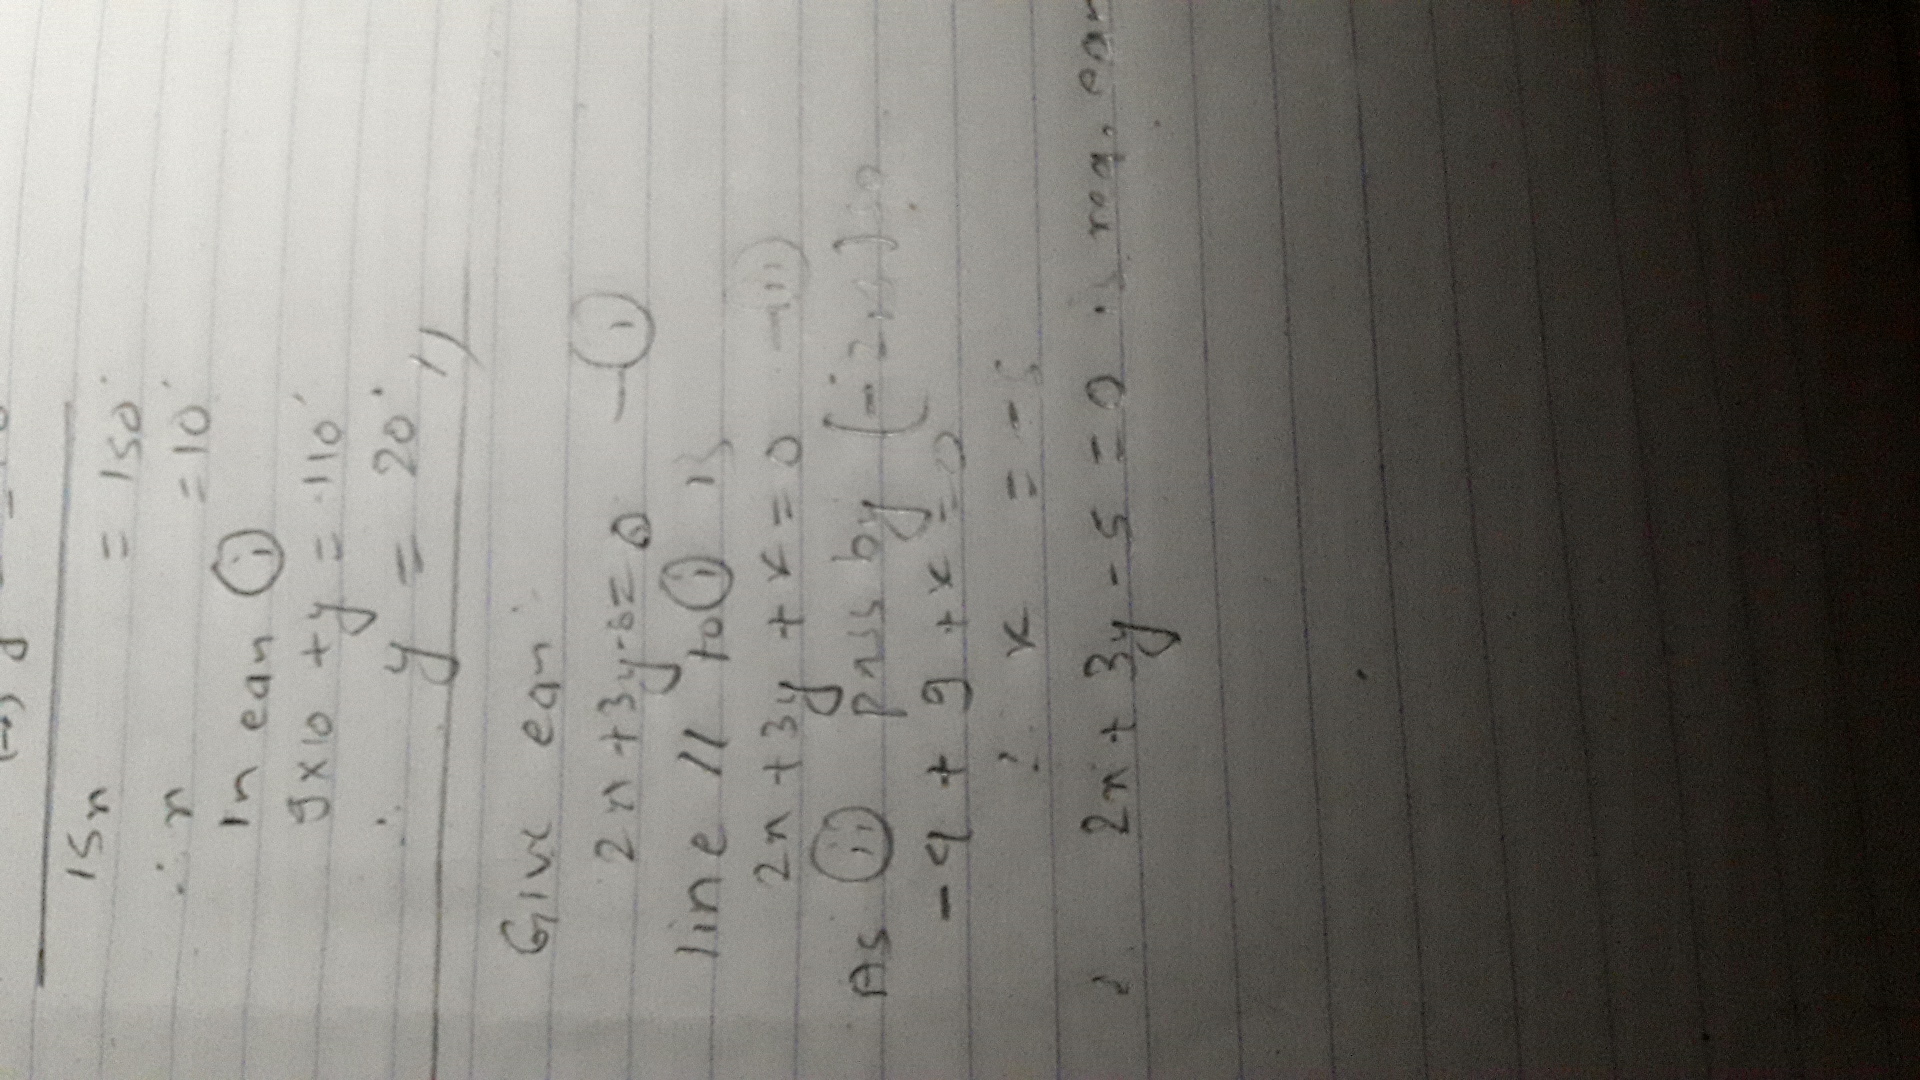 15x = 150
∴ x = 10
In eqn (i)
9×10 + y = 110
∴ y = 20 //
Give eqn
2x + 3y - 6 = 0 - (i)
line // to (i) is
2x + 3y + k = 0 - (ii)
As (ii) pass by
-4 + 9 + k = 0
∴ k = -5
∴ 2x + 3y - 5 = 0 is req. eqn